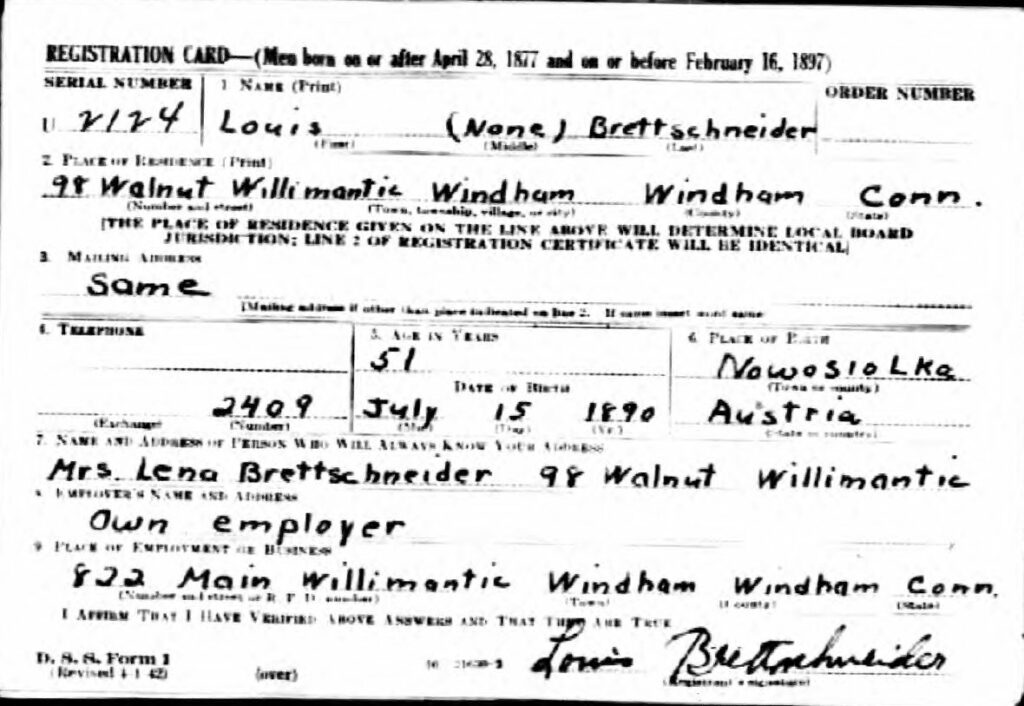 REGISTRATION CARD—(Men born on or after April 28, 1877 and on or before February 16, 1897)
SERIAL NUMBER 1. NAME (Print) ORDER NUMBER
U 2124 Louis (None) Brettschneider
(First) (Middle) (Last)
2. PLACE OF RESIDENCE (Print)
98 Walnut Willimantic Windham Windham Conn.
(Number and street) (Town, township, village, or city) (County) (State)
[THE PLACE OF RESIDENCE GIVEN ON THE LINE ABOVE WILL DETERMINE LOCAL BOARD
JURISDICTION; LINE 2 OF REGISTRATION CERTIFICATE WILL BE IDENTICAL]
3. MAILING ADDRESS
Same
[Mailing address if other than place indicated on line 2. If same insert word same]
4. TELEPHONE 5. AGE IN YEARS 6. PLACE OF BIRTH
51 Nowosiolka
DATE OF BIRTH (Town or county)
2409 July 15 1890 Austria
(Exchange) (Number) (Mo.) (Day) (Yr.) (State or country)
7. NAME AND ADDRESS OF PERSON WHO WILL ALWAYS KNOW YOUR ADDRESS
Mrs. Lena Brettschneider 98 Walnut Willimantic
8. EMPLOYER'S NAME AND ADDRESS
Own employer
9. PLACE OF EMPLOYMENT OR BUSINESS
822 Main Willimantic Windham Windham Conn.
(Number and street or R. F. D. number) (Town) (County) (State)
I AFFIRM THAT I HAVE VERIFIED ABOVE ANSWERS AND THAT THEY ARE TRUE
D. S. S. Form 1 Louis Brettschneider
(Revised 4-1-42) (over) (Registrant's signature)